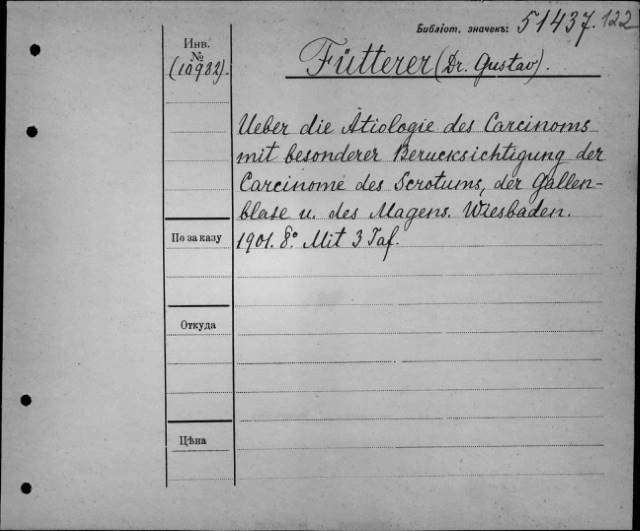 Библіот. значекъ: 51437.122
Инв.
№
(10982).
Fütterer (Dr. Gustav).
Ueber die Ätiologie des Carcinoms
mit besonderer Berucksichtigung der
Carcinome des Scrotums, der Gallen-
blase u. des Magens. Wiesbaden.
1901. 8.° Mit 3 Taf.
По заказу
Откуда
Цѣна